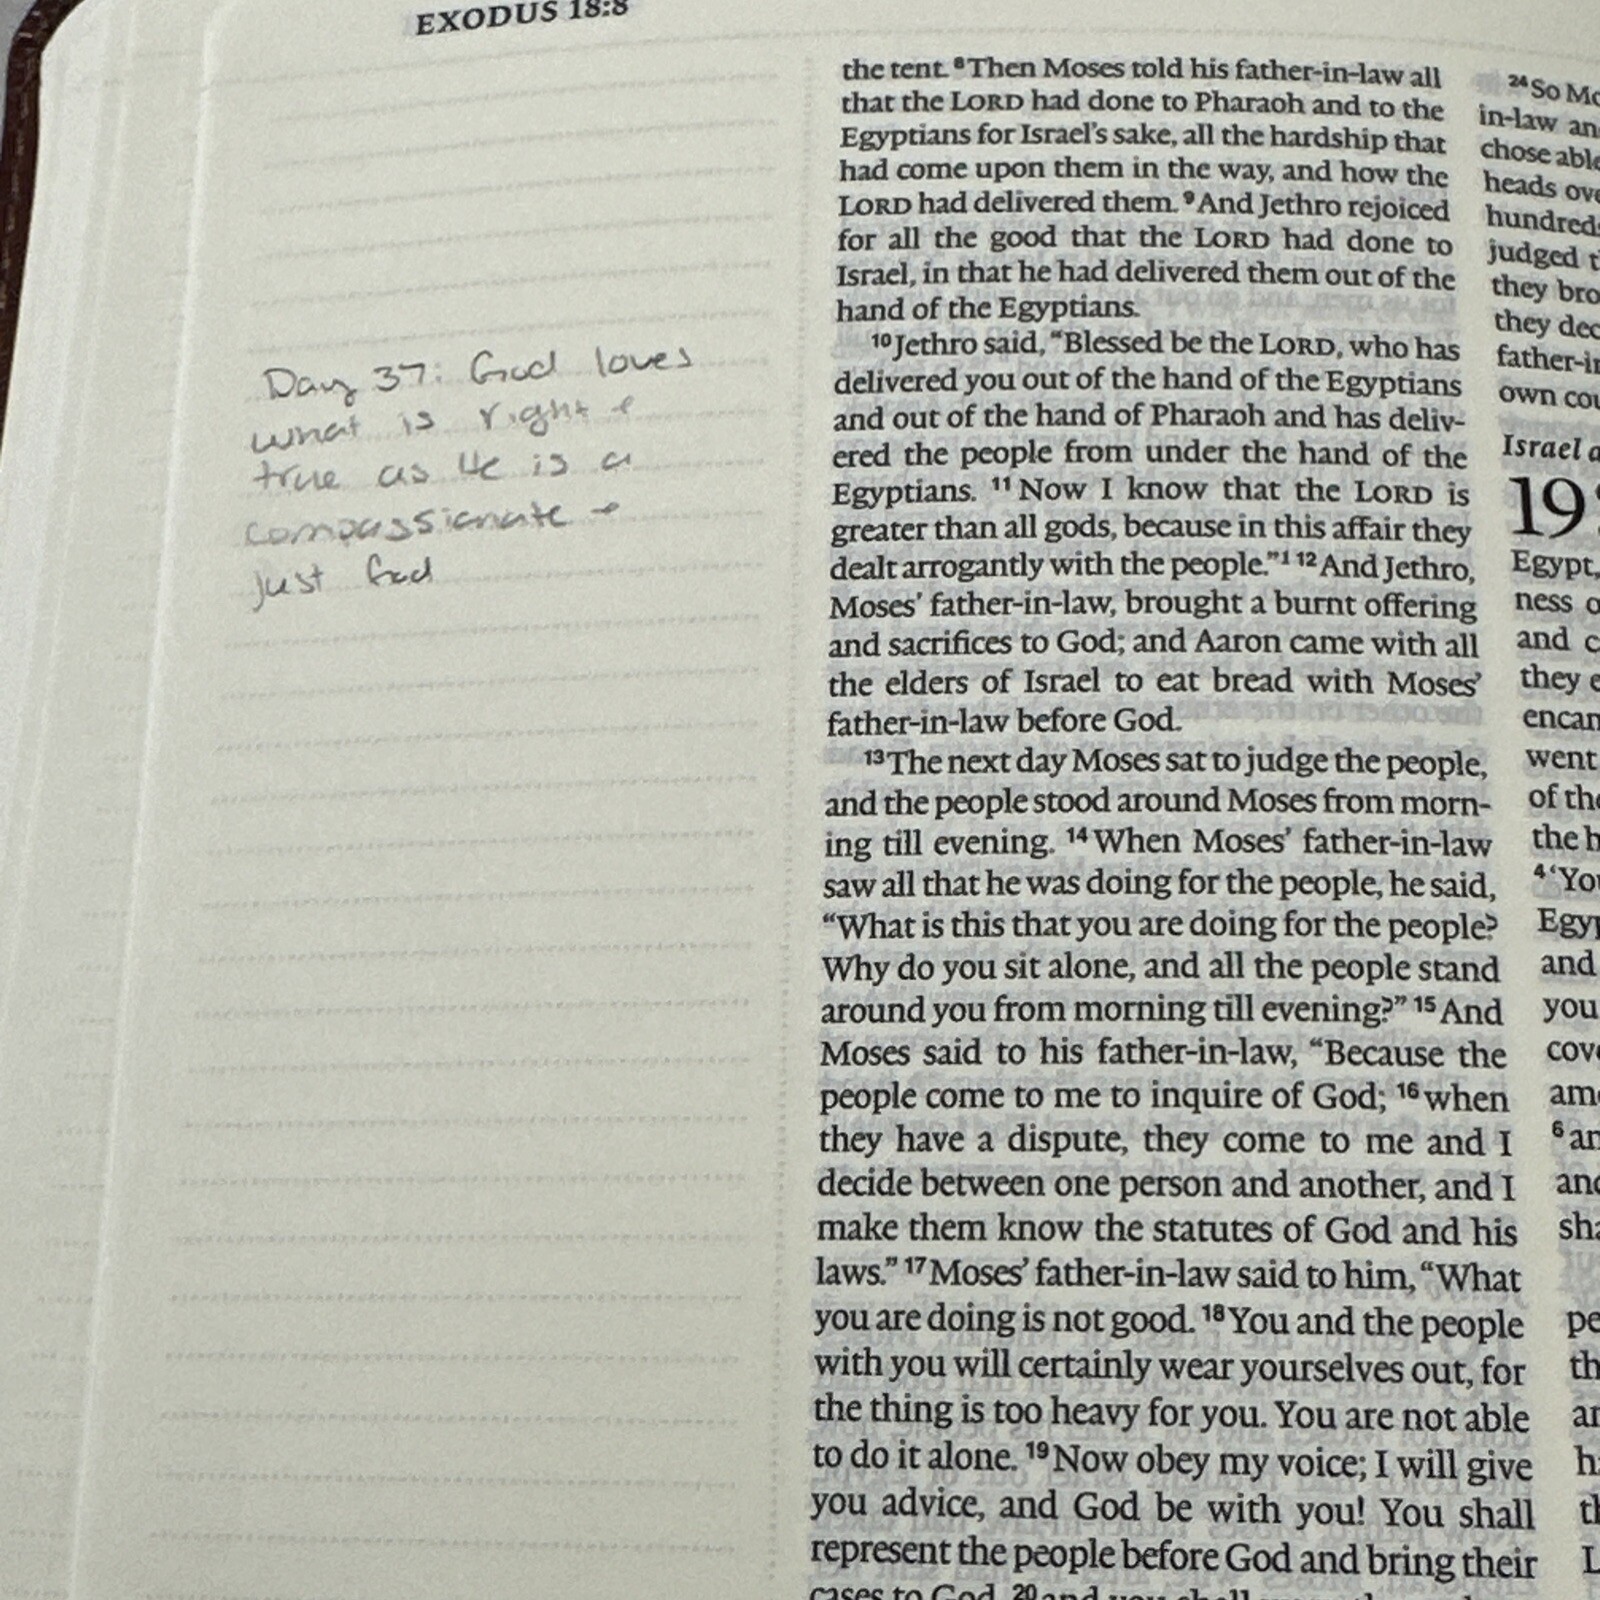 EXODUS 18:8
Day 37: God loves
what is right &
true as He is a
compassionate &
just God
the tent. ⁸Then Moses told his father-in-law all
that the LORD had done to Pharaoh and to the
Egyptians for Israel's sake, all the hardship that
had come upon them in the way, and how the
LORD had delivered them. ⁹And Jethro rejoiced
for all the good that the LORD had done to
Israel, in that he had delivered them out of the
hand of the Egyptians.
¹⁰Jethro said, “Blessed be the LORD, who has
delivered you out of the hand of the Egyptians
and out of the hand of Pharaoh and has deliv-
ered the people from under the hand of the
Egyptians. ¹¹Now I know that the LORD is
greater than all gods, because in this affair they
dealt arrogantly with the people.”¹ ¹²And Jethro,
Moses’ father-in-law, brought a burnt offering
and sacrifices to God; and Aaron came with all
the elders of Israel to eat bread with Moses’
father-in-law before God.
¹³The next day Moses sat to judge the people,
and the people stood around Moses from morn-
ing till evening. ¹⁴When Moses’ father-in-law
saw all that he was doing for the people, he said,
“What is this that you are doing for the people?
Why do you sit alone, and all the people stand
around you from morning till evening?” ¹⁵And
Moses said to his father-in-law, “Because the
people come to me to inquire of God; ¹⁶when
they have a dispute, they come to me and I
decide between one person and another, and I
make them know the statutes of God and his
laws.” ¹⁷Moses’ father-in-law said to him, “What
you are doing is not good. ¹⁸You and the people
with you will certainly wear yourselves out, for
the thing is too heavy for you. You are not able
to do it alone. ¹⁹Now obey my voice; I will give
you advice, and God be with you! You shall
represent the people before God and bring their
cases to God, ²⁰and you shall
²⁴So Mo
in-law an
chose able
heads ove
hundreds
judged t
they bro
they dec
father-in
own cou
Israel a
19
Egypt,
ness o
and c
they e
encam
went
of the
the h
⁴‘You
Egyp
and
you
cove
amo
⁶an
and
sha
pe
th
an
h
th
L